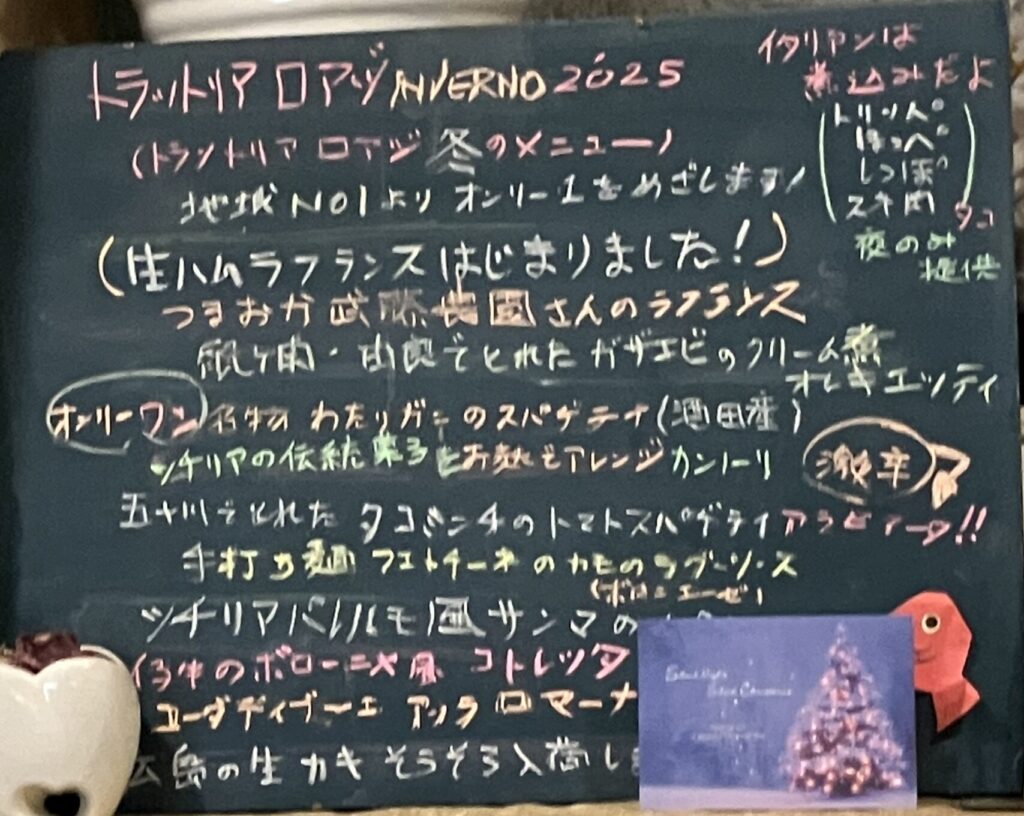 トラットリア ロアジ INVERNO 2025
(トラットリア ロアジ 冬のメニュー)
地域NO1より オンリー1をめざします!
イタリアンは
煮込みだよ
トリッパ
ほっぺ
しっぽ
スネ肉
タコ
夜のみ
提供
(生ハムラフランスはじまりました!)
つまおか武藤農園さんのラフランス
由良でとれた ガザエビのクリーム煮
オレキエッティ
オンリーワン 名物 わたりガニのスパゲティ(酒田産)
シチリアの伝統菓子をお麩でアレンジ カンノーリ
激辛
五十川でとれた タコミンチのトマトスパゲティ アラビアータ!!
手打ち麺 フェトチーネのカモのラグーソース
シチリアパルルモ風サンマの
仔牛のボローニャ風 コトレッタ
コーダディブーエ アッラ ロマーナ
広島の生カキそろそろ入荷し